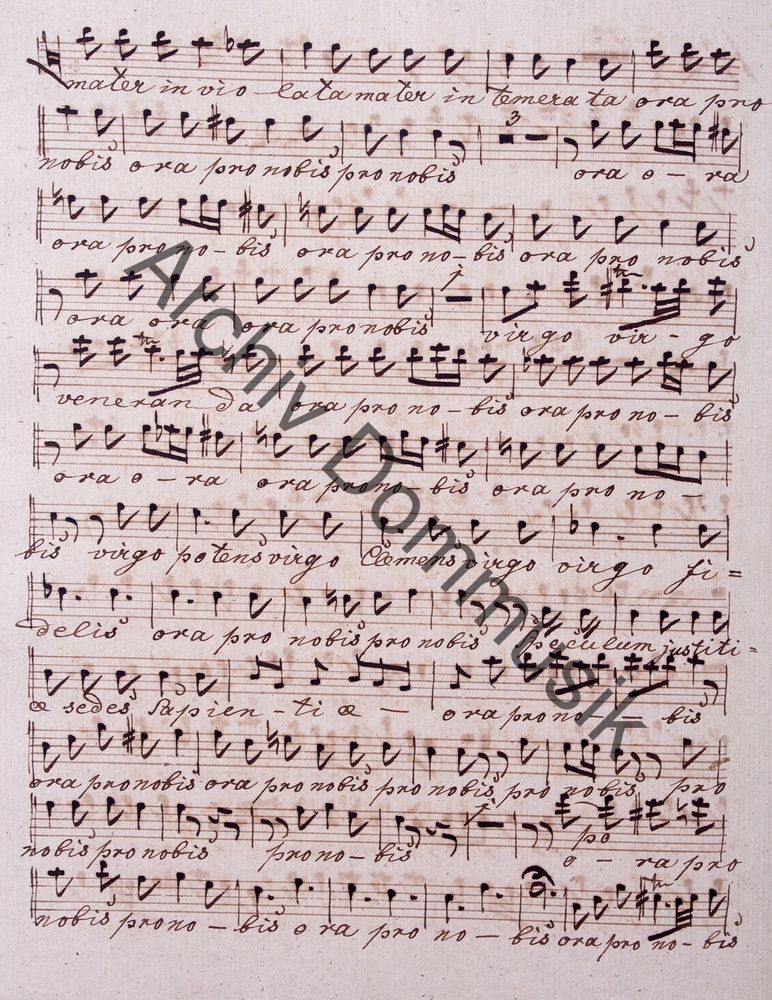 mater in vio - lata mater in temera ta ora pro
nobis ora pro nobis pro nobis 3 ora o - ra
ora pro no - bis ora pro no - bis ora pro nobis
ora ora ora pro nobis 1 virgo vir - go
veneran da ora pro no - bis ora pro no - bis
ora o - ra ora pro no - bis ora pro no -
bis virgo potens virgo Clemens virgo virgo fi =
delis ora pro nobis pro nobis Speculum justiti =
æ sedes Sapien - ti æ - ora pro no - - bis
ora pro nobis ora pro nobis pro nobis pro nobis pro
nobis pro nobis pro no - bis 1 po o - ra pro
nobis pro no - bis o ra pro no - bis ora pro no - bis
Archiv Dommusik